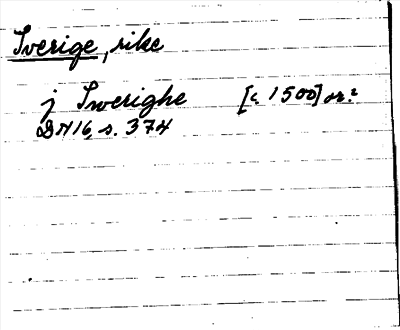 Sverige, rike
j Swerighe [c. 1500] or.?
DN 16, s. 374